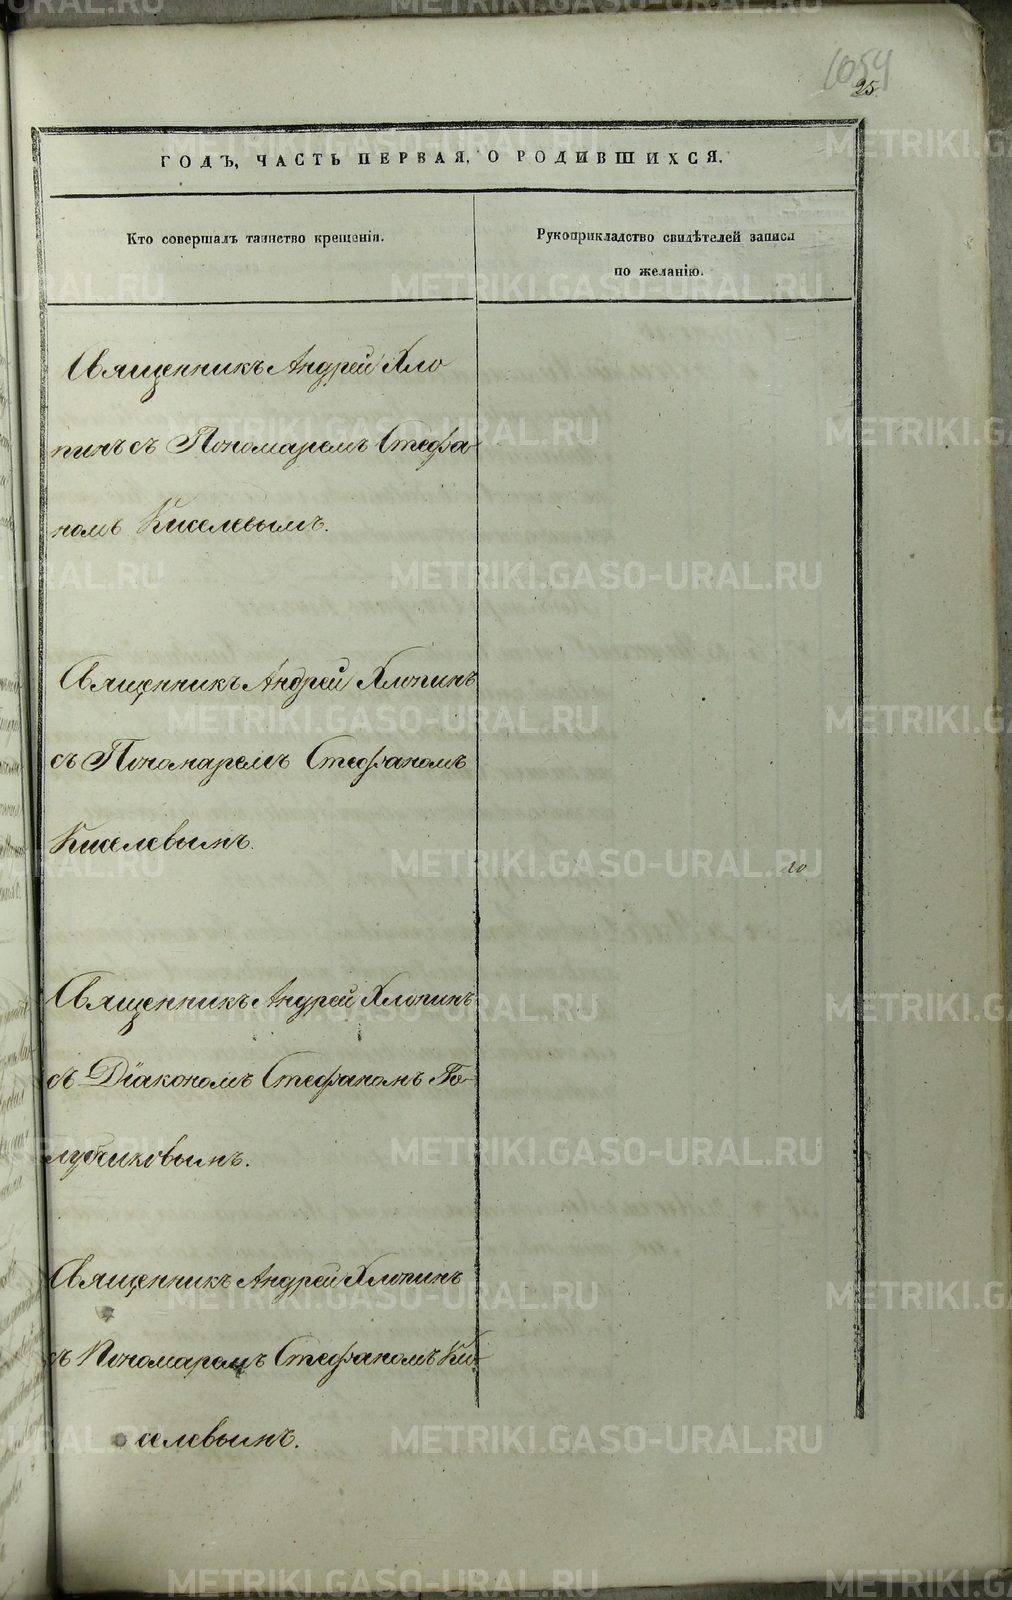 1054
25.
ГОДЪ, ЧАСТЬ ПЕРВАЯ, О РОДИВШИХСЯ.
Кто совершалъ таинство крещенія.
Рукоприкладство свидѣтелей записи
по желанію.
Священникъ Андрей Хло
пинъ съ Пономаремъ Стефа-
номъ Киселевымъ.
Священникъ Андрей Хлопинъ
съ Пономаремъ Стефаномъ
Киселевымъ.
Священникъ Андрей Хлопинъ
съ Діакономъ Стефаномъ Го-
лубчиковымъ.
Священникъ Андрей Хлопинъ
съ Пономаремъ Стефаномъ Ки-
селевымъ.
METRIKI.GASO-URAL.RU